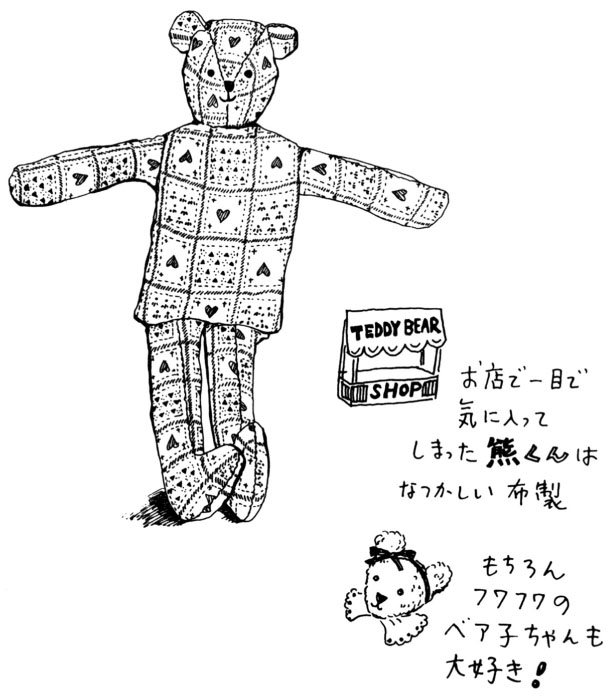 TEDDY BEAR
SHOP
お店で一目で
気に入って
しまった熊くんは
なつかしい布製
もちろん
フワフワの
ベア子ちゃんも
大好き!